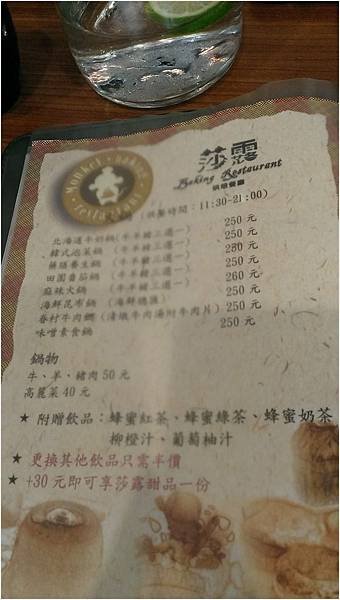 Monkey Baking Restaurant
莎露
Baking Restaurant
烘焙餐廳
(供餐時間:11:30-21:00)
北海道牛奶鍋(牛羊豬三選一) 250元
韓式泡菜鍋(牛羊豬三選一) 250元
藥膳養生鍋(牛羊豬三選一) 250元
田園番茄鍋(牛羊豬三選一) 250元
麻辣火鍋(牛羊豬三選一) 260元
海鮮昆布鍋(海鮮總匯) 250元
眷村牛肉鍋(清燉牛肉湯附牛肉片) 250元
味噌素食鍋 250元
鍋物
牛、羊、豬肉50元
高麗菜40元
★ 附贈飲品:蜂蜜紅茶、蜂蜜綠茶、蜂蜜奶茶
柳橙汁、葡萄柚汁
★ 更換其他飲品只需半價
★ +30元即可享莎露甜品一份